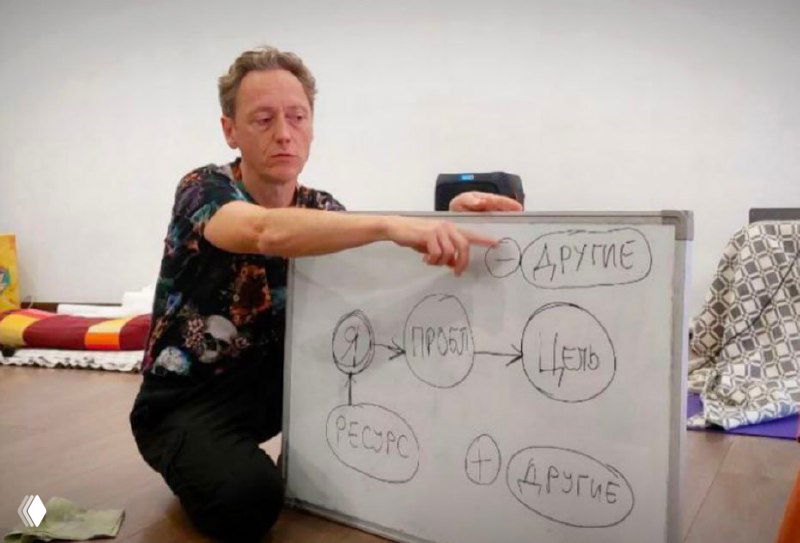 − ДРУГИЕ
Я ПРОБЛ ЦЕЛЬ
РЕСУРС
+ ДРУГИЕ